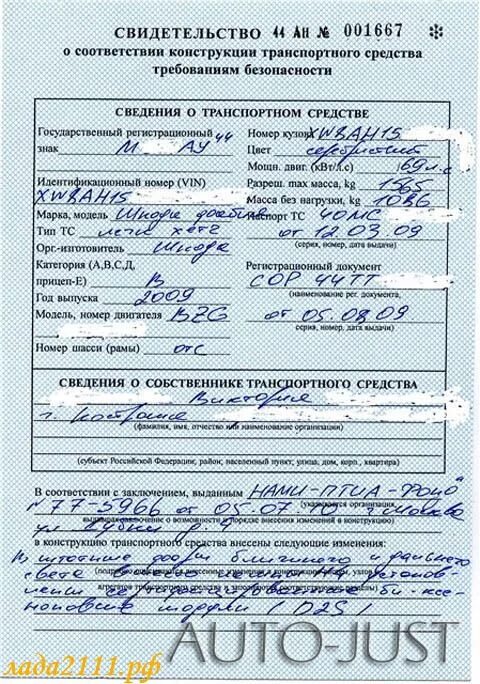 СВИДЕТЕЛЬСТВО 44 АН № 001667
о соответствии конструкции транспортного средства
требованиям безопасности
СВЕДЕНИЯ О ТРАНСПОРТНОМ СРЕДСТВЕ
Государственный регистрационный
знак М АУ 44
Идентификационный номер (VIN)
XW8AH15
Марка, модель Шкода
Тип ТС легк хетч
Орг.-изготовитель Шкода
Категория (А,В,С,D,
прицеп-Е) В
Год выпуска 2009
Модель, номер двигателя BZG
Номер шасси (рамы) отс
Номер кузова XW8AH15
Цвет серебристый
Мощн. двиг. (кВт/л.с) 69 л.с
Разреш. max масса, kg 1565
Масса без нагрузки, kg 1086
Паспорт ТС 40МС
от 12.03.09
(серия, номер, дата выдачи)
Регистрационный документ
СОР 44ТТ
(наименование рег. документа,
от 05.08.09
серия, номер, дата выдачи)
СВЕДЕНИЯ О СОБСТВЕННИКЕ ТРАНСПОРТНОГО СРЕДСТВА
Виктория
г. Кострома
(фамилия, имя, отчество или наименование организации)
(субъект Российской Федерации, район, населенный пункт, улица, дом, корп., квартира)
В соответствии с заключением, выданным НАМИ-ПТИА-Фонд
(указывается организация,
№ 77-5966 от 05.07.10 г. Москва
выдавшая заключение о возможности и порядке внесения изменений в конструкцию)
ул
в конструкцию транспортного средства внесены следующие изменения:
В штатные фары ближнего и дальнего
света
би-ксе-
ноновые (D2S)
AUTO-JUST
лада2111.рф